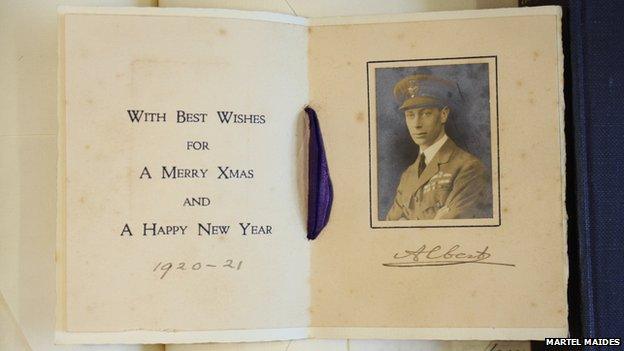 WITH BEST WISHES
FOR
A MERRY XMAS
AND
A HAPPY NEW YEAR
1920-21
Albert
MARTEL MAIDES